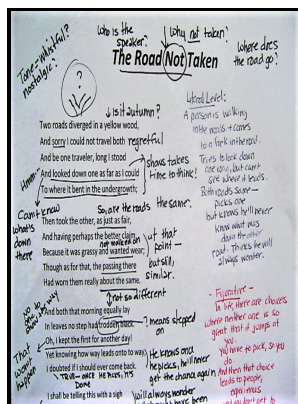 who is the
speaker?
Why not taken?
Tone-whistful?
nostalgic?
Where does
the road go?
The Road Not Taken
?
↓ Is it autumn?
Two roads diverged in a yellow wood,
And sorry I could not travel both regretful
And be one traveler, long I stood
And looked down one as far as I could
To where it bent in the undergrowth;
shows takes
time to think!
Hmm...
Can't know
what's
down
there
So, are the roads the same?
Then took the other, as just as fair,
And having perhaps the better claim
not walked on
Because it was grassy and wanted wear;
Though as for that, the passing there
Had worn them really about the same.
up that
point—
but still,
similar.
not so different
And both that morning equally lay
In leaves no step had trodden black.
means stepped
on
Oh, I kept the first for another day!
Yet knowing how way leads onto way,
I doubted if I should ever come back.
He knows once
he picks, he'll never
get the chance again
No one to
That won't
happen
I shall be telling this with a sigh
will always wonder
Literal Level:
A person is walking
in the woods + comes
to a fork in the road.
Tries to look down
one road, but can't
see where it leads.
Both roads same—
picks one
but knows he'll never
know what was
down the other
road. Thinks he will
always wonder.
Figurative—
In life, there are choices
where neither one is so
great that it jumps at
you.
You have to pick, so you
do.
And then that choice
leads to people,
experiences